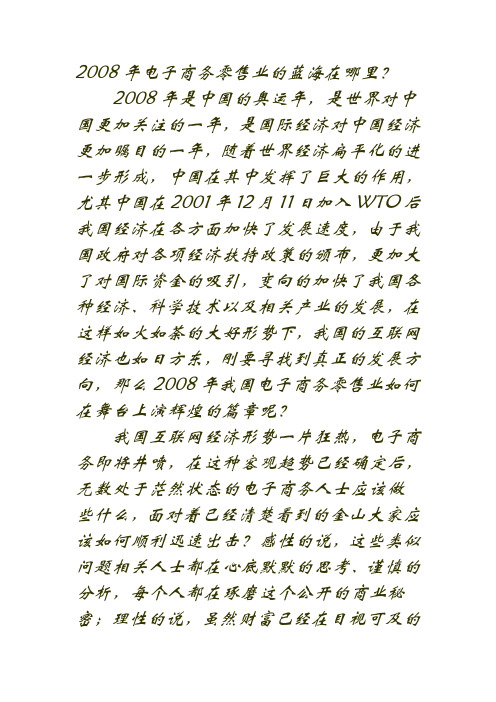 2008 年电子商务零售业的蓝海在哪里?
2008 年是中国的奥运年，是世界对中
国更加关注的一年，是国际经济对中国经济
更加瞩目的一年，随着世界经济扁平化的进
一步形成，中国在其中发挥了巨大的作用，
尤其中国在 2001 年 12 月 11 日加入 WTO 后
我国经济在各方面加快了发展速度，由于我
国政府对各项经济扶持政策的颁布，更加大
了对国际资金的吸引，变向的加快了我国各
种经济、科学技术以及相关产业的发展，在
这样如火如荼的大好形势下，我国的互联网
经济也如日方东，刚要寻找到真正的发展方
向，那么 2008 年我国电子商务零售业如何
在舞台上演辉煌的篇章呢?
我国互联网经济形势一片狂热，电子商
务即将井喷，在这种客观趋势已经确定后，
无数处于茫然状态的电子商务人士应该做
些什么，面对着已经清楚看到的金山大家应
该如何顺利迅速出击? 感性的说，这些类似
问题相关人士都在心底默默的思考、谨慎的
分析，每个人都在琢磨这个公开的商业秘
密；理性的说，虽然财富已经在目视可及的